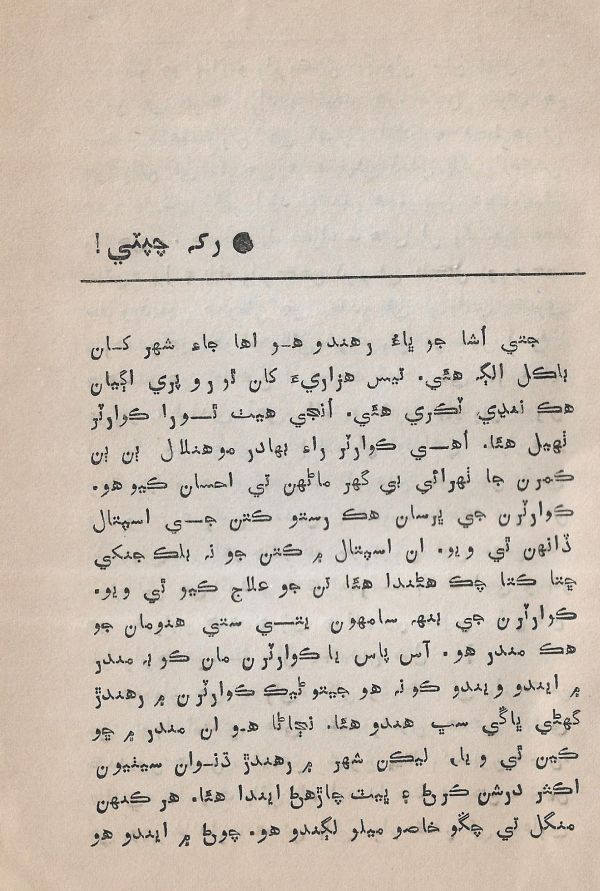 ● رکہ چپٽي!
جتي اُشا جو ڀاءُ رهندو هو اها جاء شهر کان
باڪل الڳ هئي. ٽيس هزاريءَ کان ٿورو پري اڳيان
هڪ ننڍي ٽڪري هئي. اُنجي هيٺ ٿورا ڪوارٽر
ٺهيل هئا. اُهي ڪوارٽر راء بهادر موهنلال ٻن ٻن
ڪمرن جا ٺهرائي بي گهر ماڻهن تي احسان ڪيو هو.
ڪوارٽرن جي ڀرسان هڪ رستو ڪتن جي اسپتال
ڏانهن ٿي ويو. ان اسپتال ۾ ڪتن جو نه بلڪ جنکي
ڇتا ڪتا چڪ هڻندا هئا تن جو علاج ڪيو ٿي ويو.
ڪوارٽرن جي بنهه سامهون پٽي سٽي هنومان جو
هڪ مندر هو. آس پاس يا ڪوارٽرن مان ڪو به مندر
۾ ايندو ويندو ڪو نه هو جيتوڻيڪ ڪوارٽرن ۾ رهندڙ
گهڻي ڀاڱي سڀ هندو هئا. نڄاڻا هو ان مندر ۾ ڇو
ڪين ٿي ويا، ليڪن شهر ۾ رهندڙ ڌنوان سيٺيون
اڪثر درشن ڪرڻ ۽ ڀيٽ چاڙهڻ ايندا هئا. هر ڪنهن
منگل تي چڱو خاصو ميلو لڳندو هو. چوڻ ۾ ايندو هو